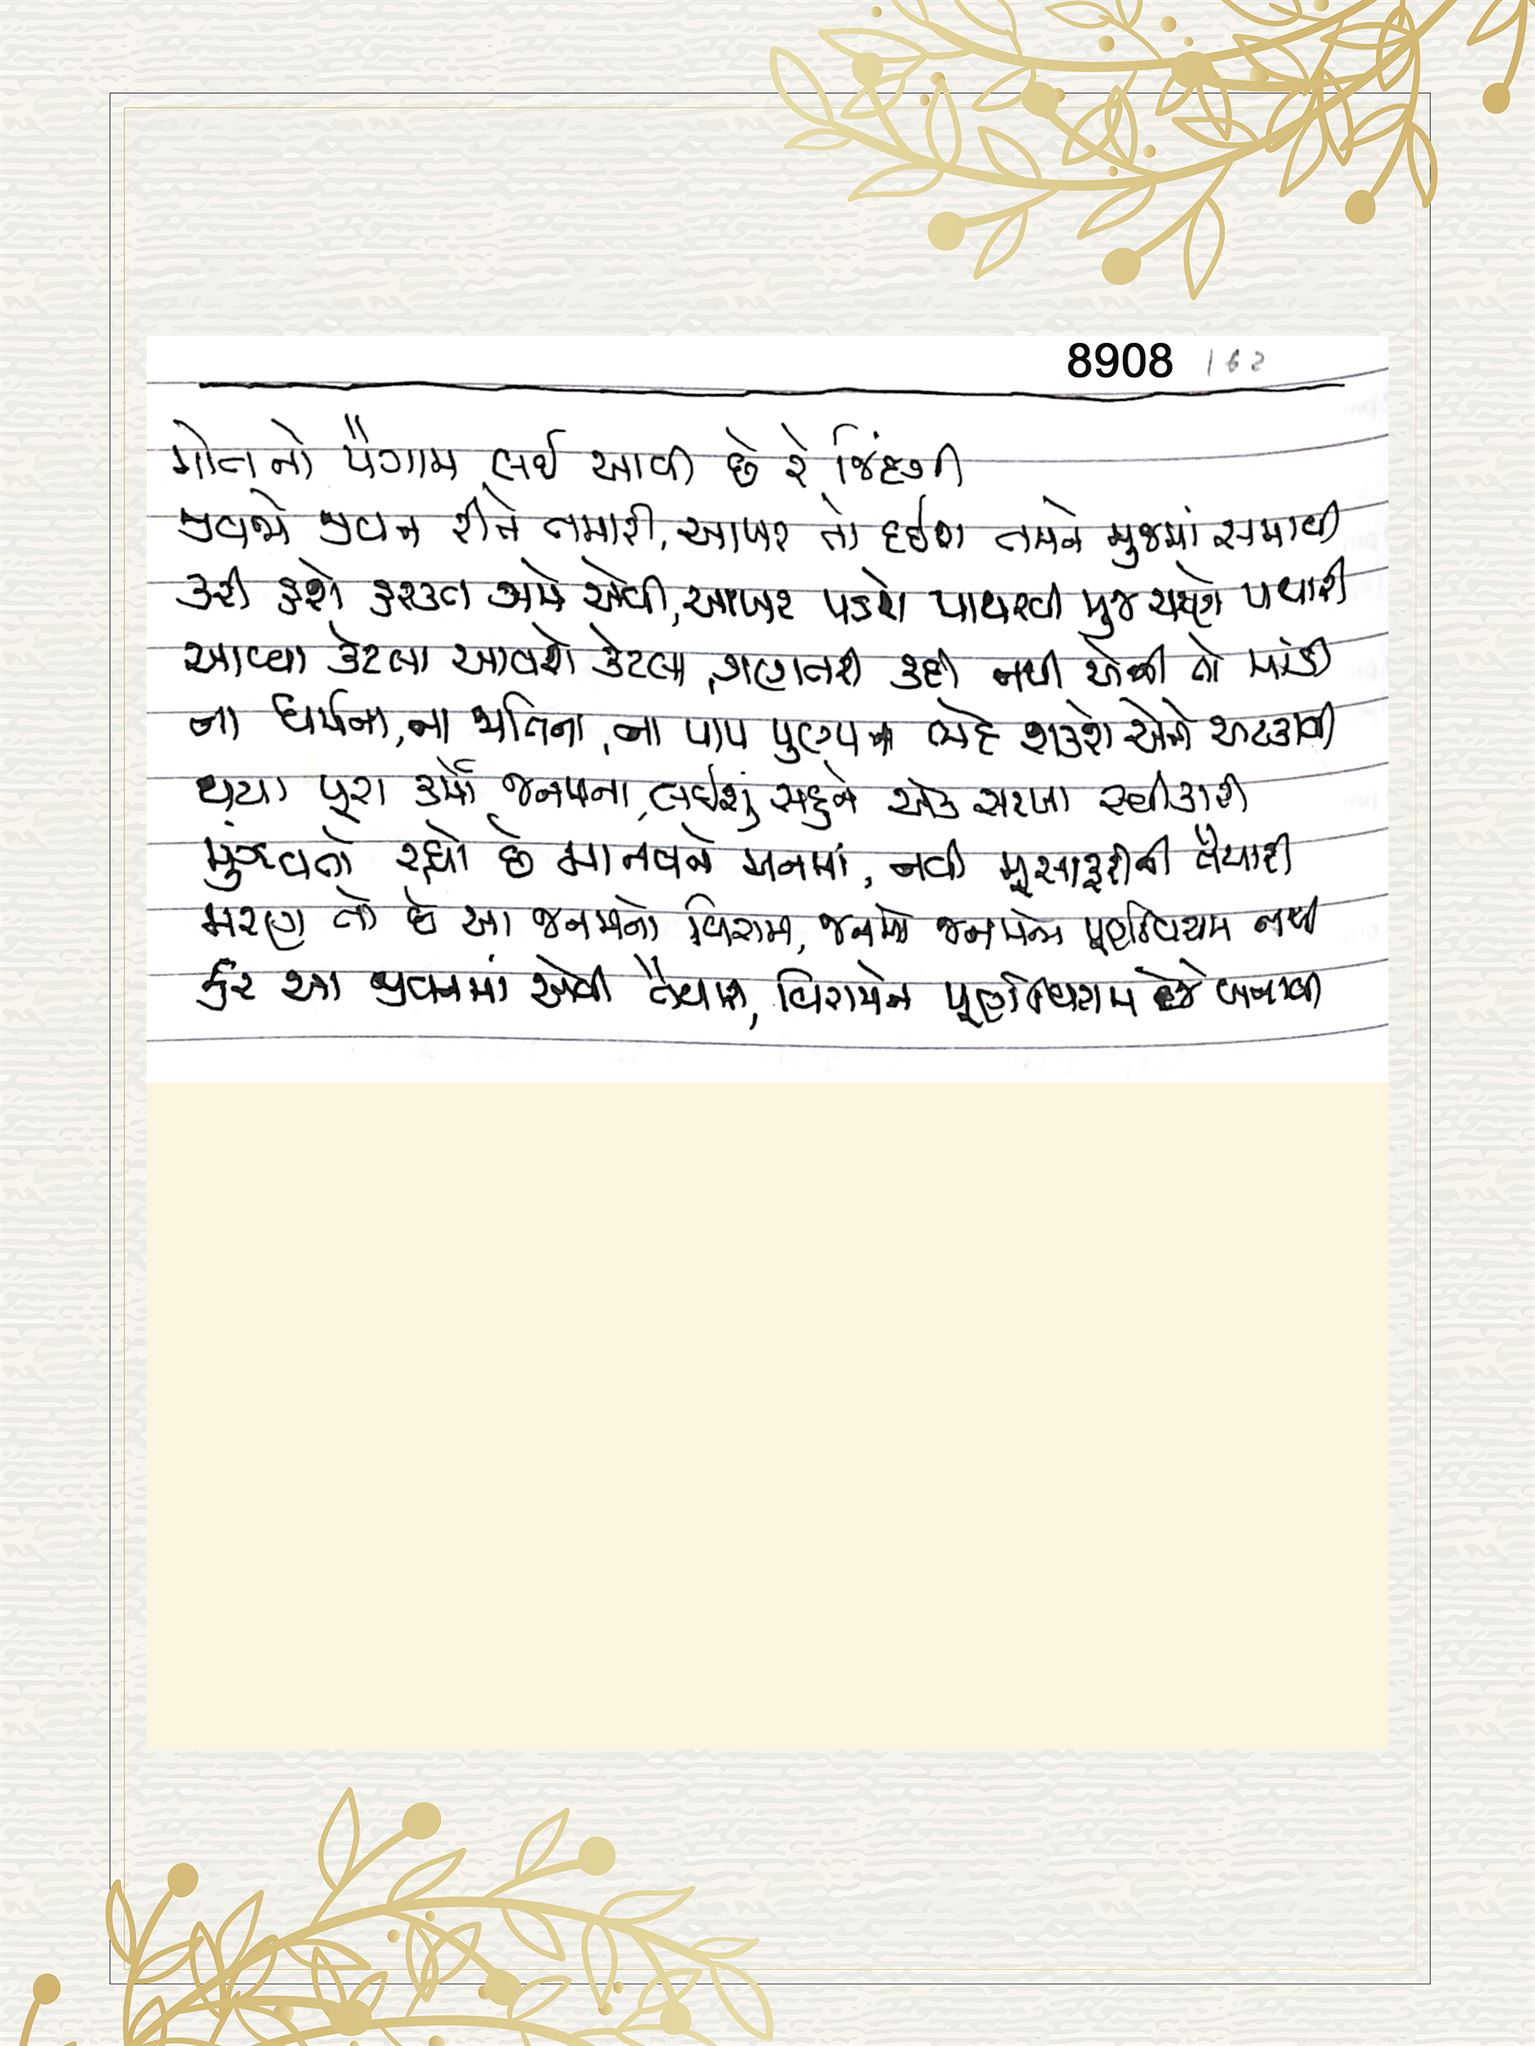 8908 162
મોતનો પૈગામ લઈ આવી છે રે જિંદગી
જીવજો જીવન રીતે તમારી, આખર તો દઈશ તમને મુજમાં સમાવી
કરી હશે કરામત અમે એવી, આખર પડશે પાથરવી મુજ ચરણે પથારી
આવ્યા કેટલા આવશે કેટલા, ગણતરી કદી નથી એની તો માંડી
ના ધર્મના, ના જાતિના, ના પાપ પુણ્યના ભેદ શકશે એને અટકાવી
થયા પૂરા કર્મો જનમના, લઈશું સહુને એક સરખા સ્વીકારી
મુંઝવતો રહ્યો છે માનવને મનમાં, નવી મુસાફરીની તૈયારી
મરણ તો છે આ જનમનો વિરામ, જનમો જનમનો પૂર્ણવિરામ નથી
કર આ જીવનમાં એવી તૈયારી, વિરામને પૂર્ણવિરામ દેજે બનાવી